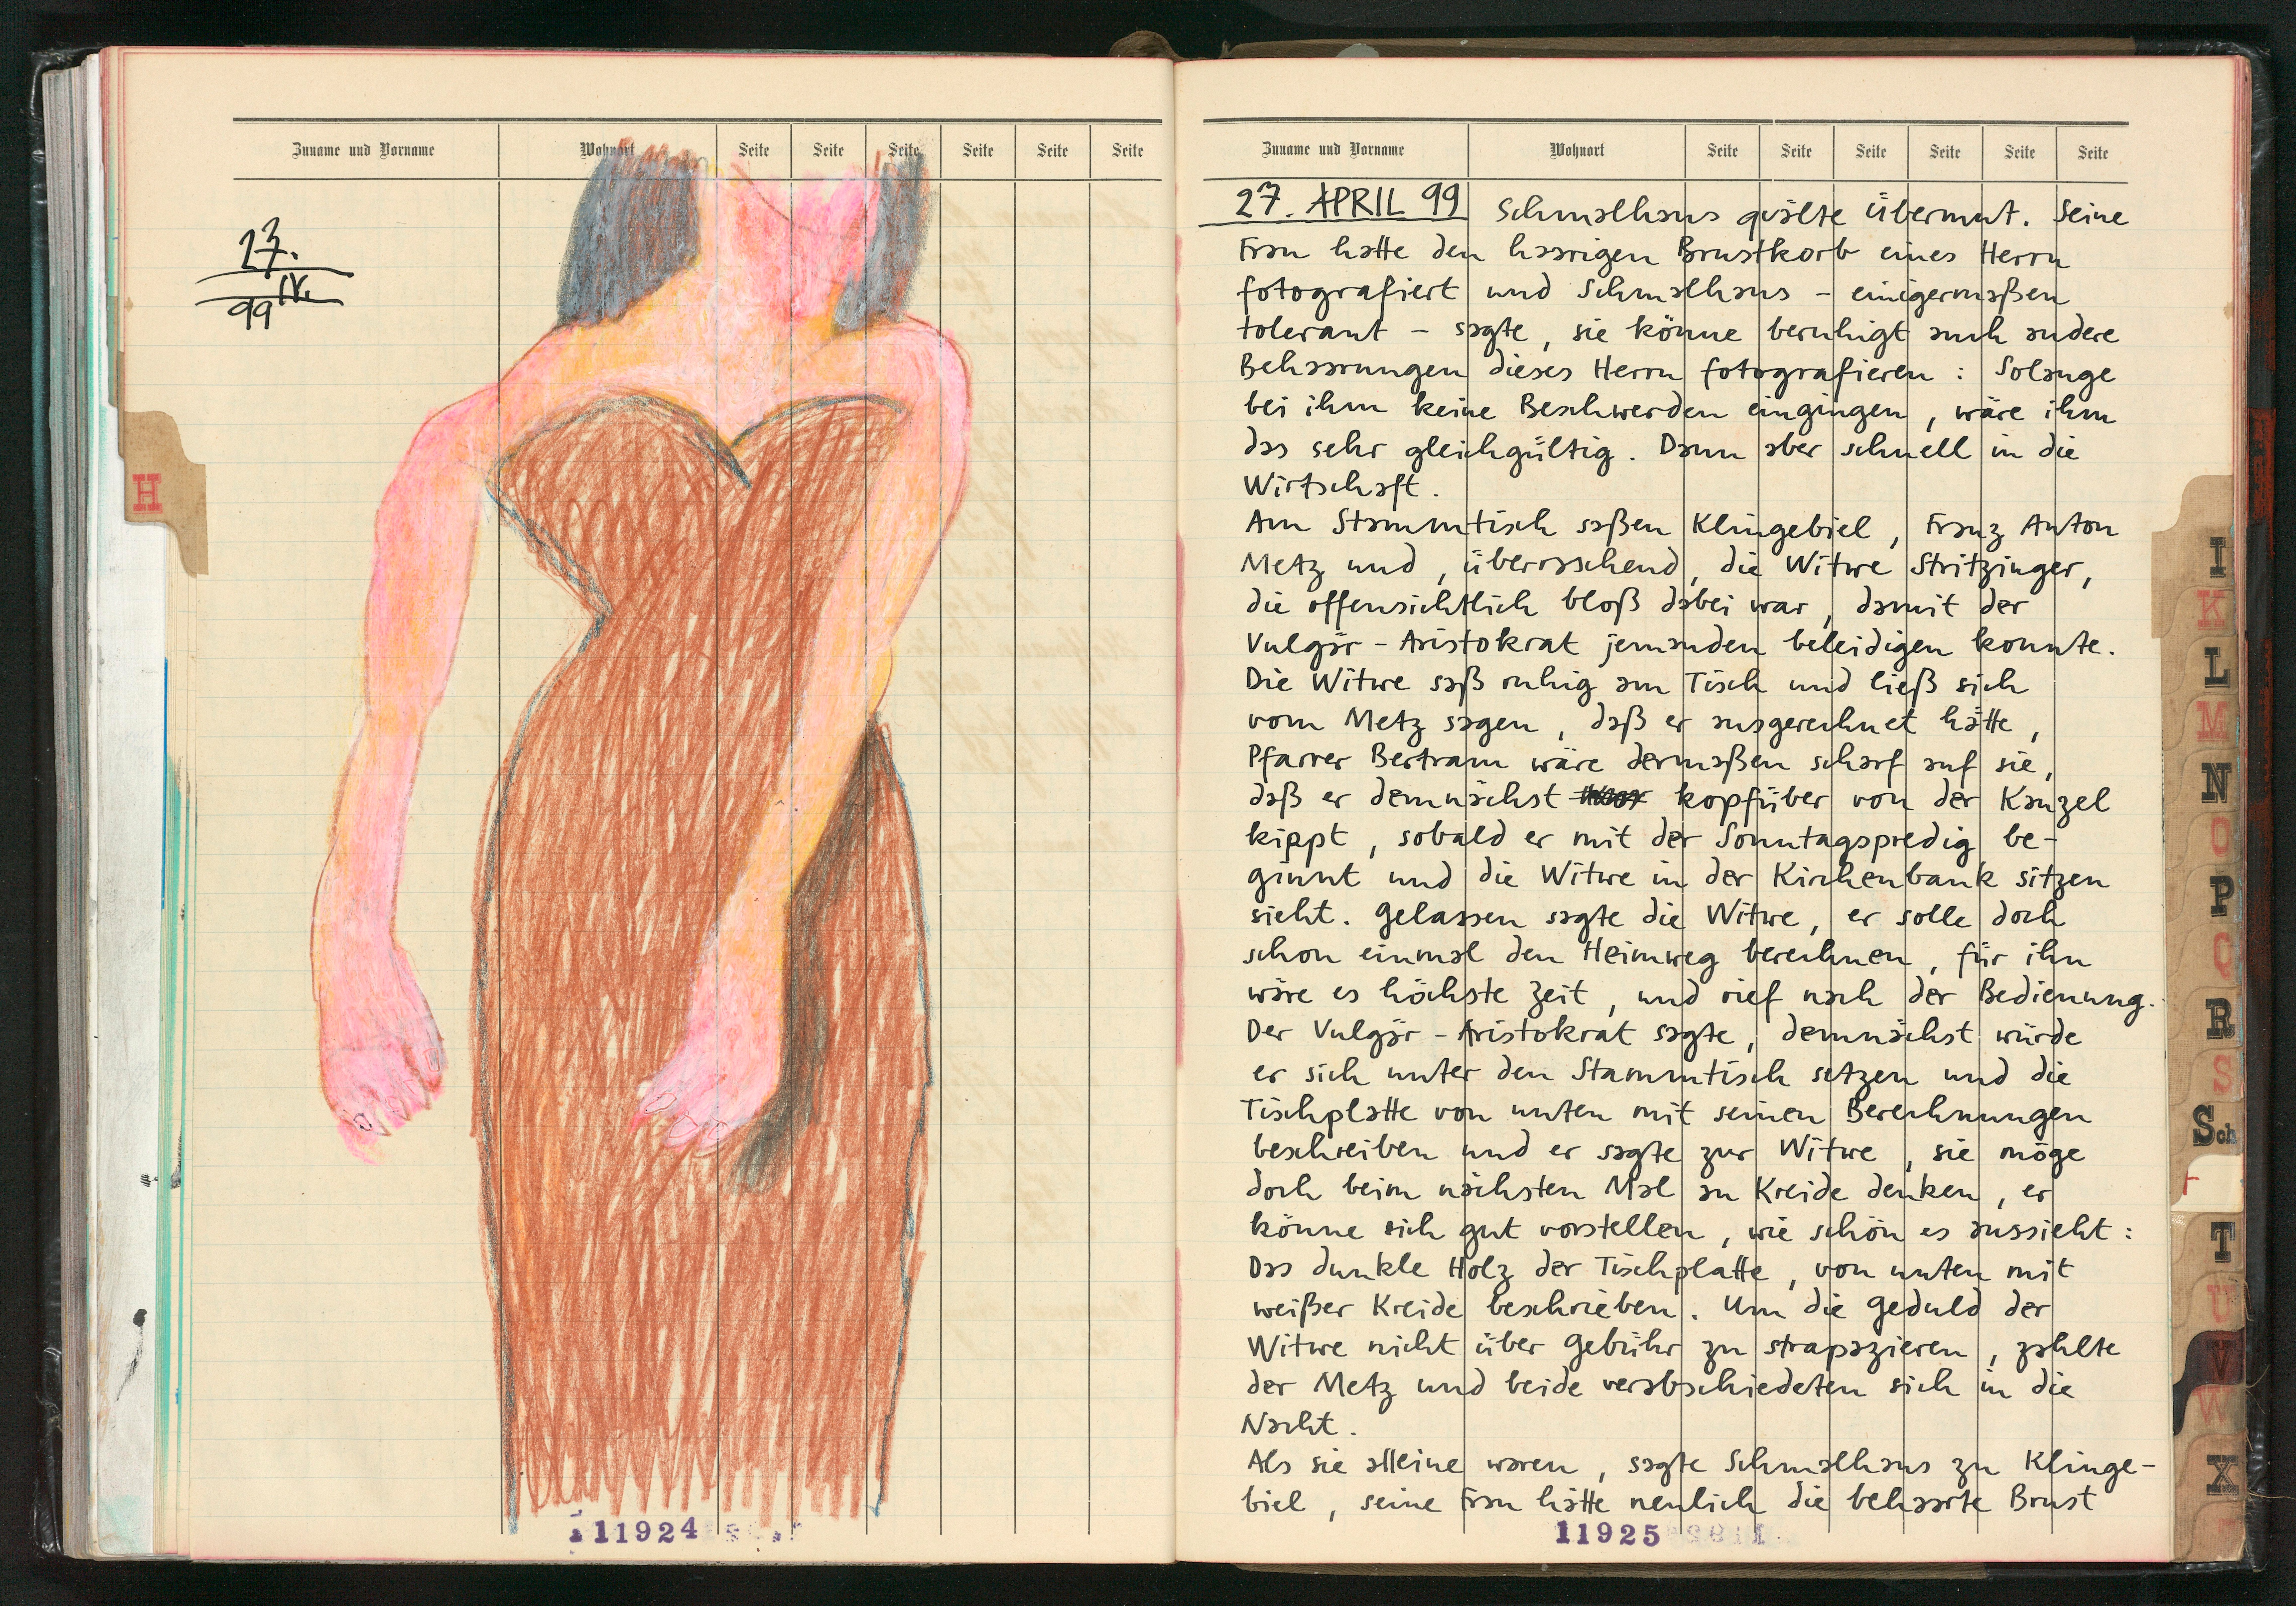 Zuname und Vorname Wohnort Seite Seite Seite Seite Seite Seite
27.
IV.
99
H
11924
Zuname und Vorname Wohnort Seite Seite Seite Seite Seite Seite
27. APRIL 99 Schmalhans quälte Übermut. Seine
Frau hatte den haarigen Brustkorb eines Herrn
fotografiert und Schmalhans – einigermaßen
tolerant – sagte, sie könne beruhigt auch andere
Behaarungen dieses Herrn fotografieren: Solange
bei ihm keine Beschwerden eingingen, wäre ihm
das sehr gleichgültig. Dann aber schnell in die
Wirtschaft.
Am Stammtisch saßen Klingebiel, Franz Anton
Metz und, überraschend, die Witwe Stritzinger,
die offensichtlich bloß dabei war, damit der
Vulgär-Aristokrat jemanden beleidigen konnte.
Die Witwe saß ruhig am Tisch und ließ sich
vom Metz sagen, daß er ausgerechnet hätte,
Pfarrer Bertram wäre dermaßen scharf auf sie,
daß er demnächst kopfüber von der Kanzel
kippt, sobald er mit der Sonntagspredig be-
ginnt und die Witwe in der Kirchenbank sitzen
sieht. Gelassen sagte die Witwe, er solle doch
schon einmal den Heimweg berechnen, für ihn
wäre es höchste Zeit, und rief nach der Bedienung.
Der Vulgär-Aristokrat sagte, demnächst würde
er sich unter den Stammtisch setzen und die
Tischplatte von unten mit seinen Berechnungen
beschreiben und er sagte zur Witwe, sie möge
doch beim nächsten Mal an Kreide denken, er
könne sich gut vorstellen, wie schön es aussieht:
Das dunkle Holz der Tischplatte, von unten mit
weißer Kreide beschrieben. Um die Geduld der
Witwe nicht über Gebühr zu strapazieren, zahlte
der Metz und beide verabschiedeten sich in die
Nacht.
Als sie alleine waren, sagte Schmalhans zu Klinge-
biel, seine Frau hätte neulich die behaarte Brust
11925
I
K
L
M
N
O
P
Q
R
S
Sch
T
U
V
W
X